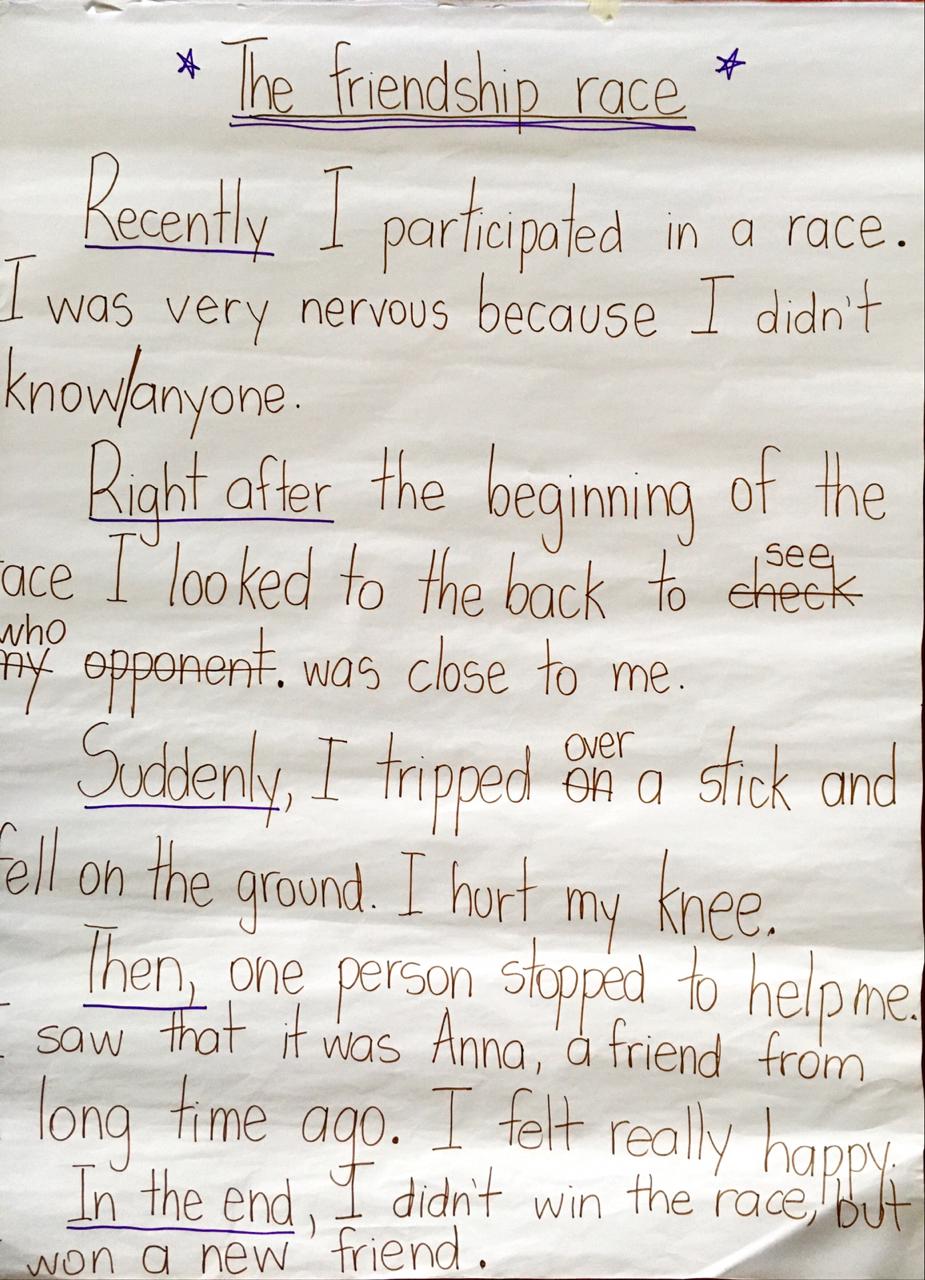 * The friendship race *
Recently I participated in a race.
I was very nervous because I didn't
know/anyone.
Right after the beginning of the
ace I looked to the back to check see
my who opponent. was close to me.
Suddenly, I tripped on over a stick and
fell on the ground. I hurt my knee.
Then, one person stopped to help me.
I saw that it was Anna, a friend from
long time ago. I felt really happy.
In the end, I didn't win the race, but
won a new friend.